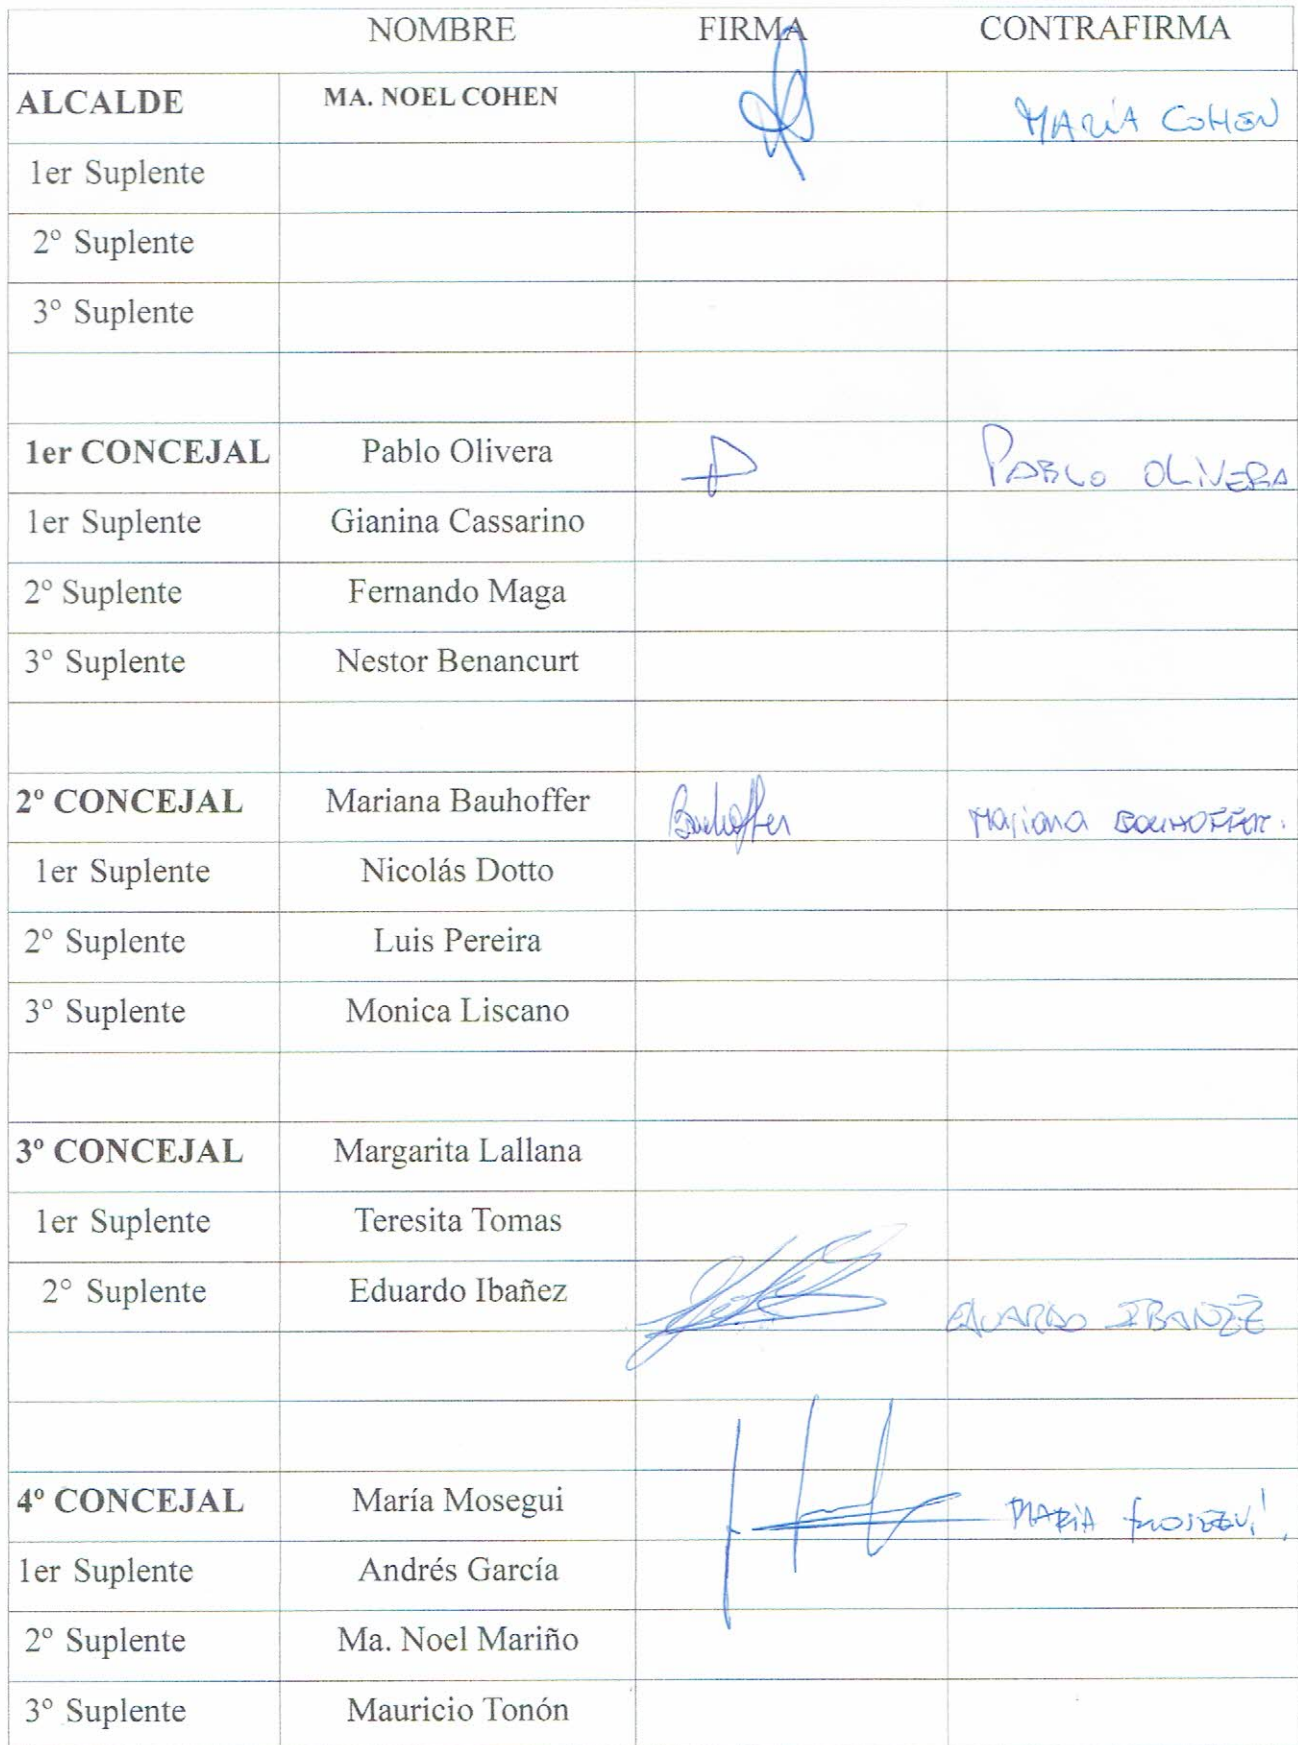 NOMBRE FIRMA CONTRAFIRMA
ALCALDE MA. NOEL COHEN MARÍA COHEN
1er Suplente
2º Suplente
3º Suplente
1er CONCEJAL Pablo Olivera PABLO OLIVERA
1er Suplente Gianina Cassarino
2º Suplente Fernando Maga
3º Suplente Nestor Benancurt
2º CONCEJAL Mariana Bauhoffer Bauhoffer Mariana BAUHOFFER.
1er Suplente Nicolás Dotto
2º Suplente Luis Pereira
3º Suplente Monica Liscano
3º CONCEJAL Margarita Lallana
1er Suplente Teresita Tomas
2º Suplente Eduardo Ibañez EDUARDO IBANEZ
4º CONCEJAL María Mosegui MARÍA MOSEGUÍ
1er Suplente Andrés García
2º Suplente Ma. Noel Mariño
3º Suplente Mauricio Tonón